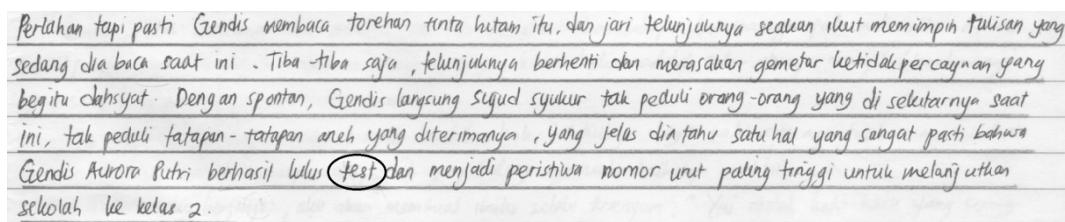 Perlahan tapi pasti Gendis membaca torehan tinta hitam itu, dan jari telunjuknya seakan ikut memimpin tulisan yang
sedang dia baca saat ini. Tiba-tiba saja, telunjuknya berhenti dan merasakan gemetar ketidakpercayaan yang
begitu dahsyat. Dengan spontan, Gendis langsung sujud syukur tak peduli orang-orang yang di sekitarnya saat
ini, tak peduli tatapan-tatapan aneh yang diterimanya, yang jelas dia tahu satu hal yang sangat pasti bahwa
Gendis Aurora Putri berhasil lulus test dan menjadi peristiwa nomor urut paling tinggi untuk melanjutkan
sekolah ke kelas 2.